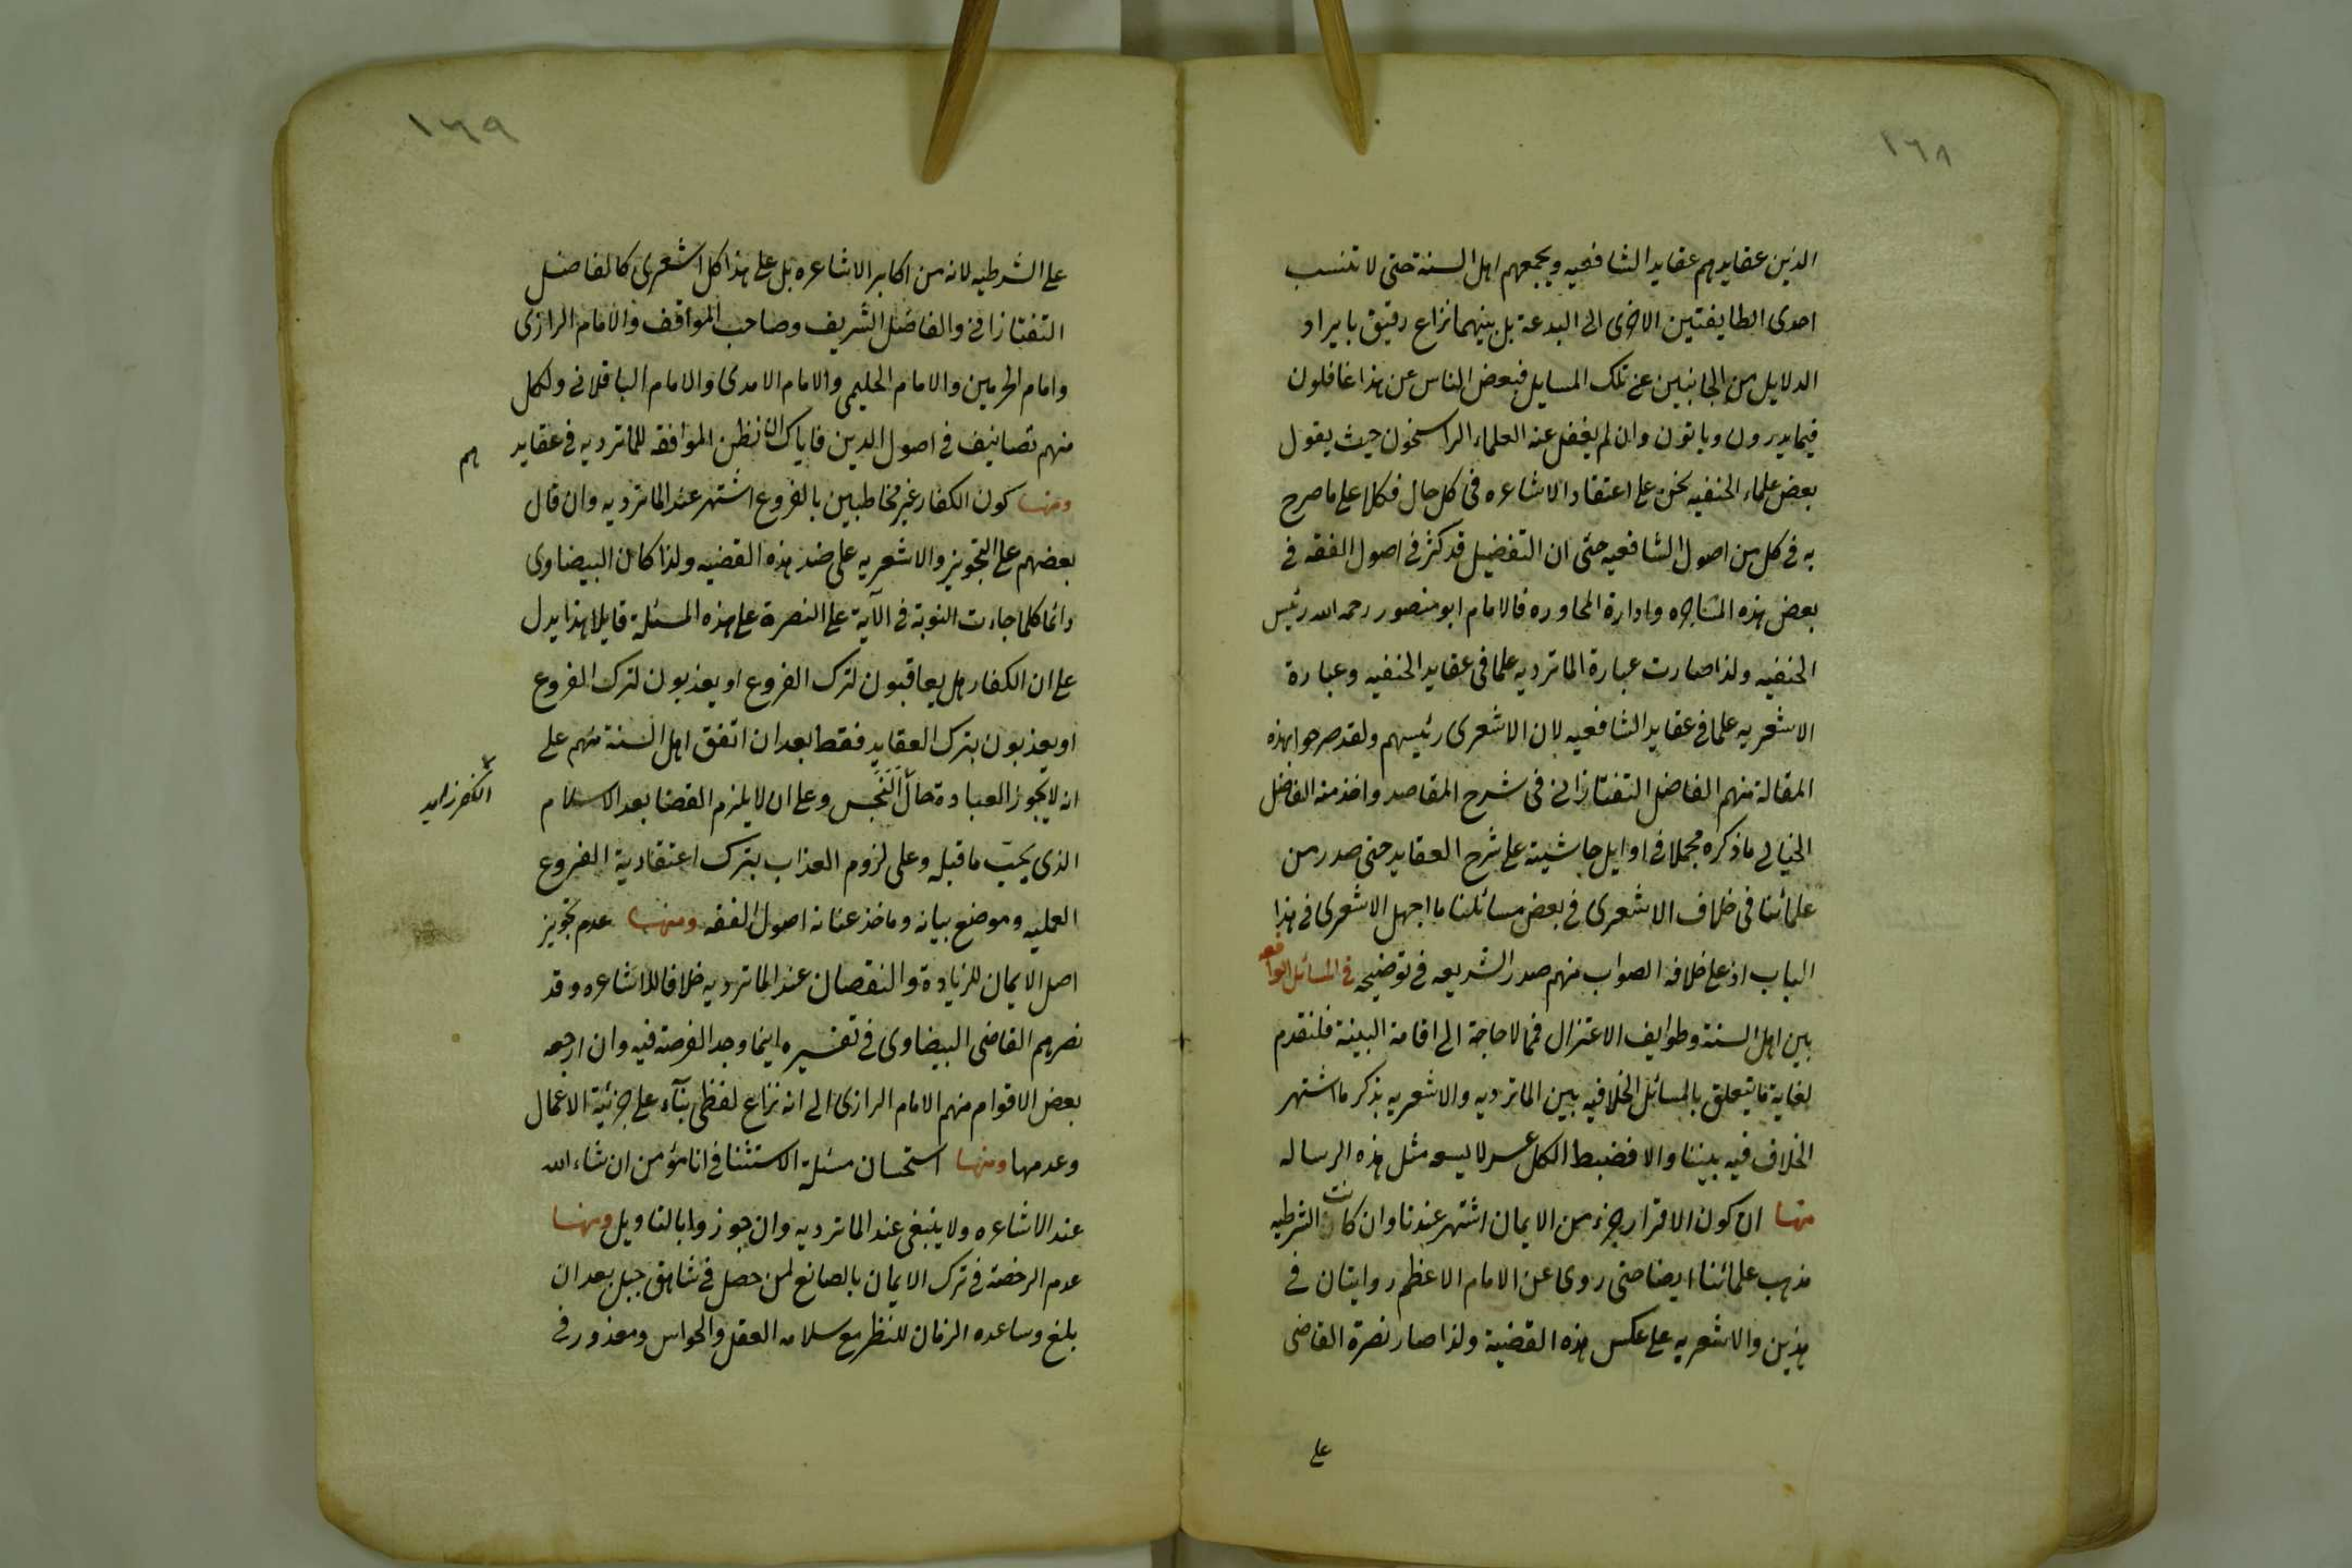 ١٦٨
الذين عقايدهم عقايد الشافعيه ويجمعهم اهل السنة حتى لا تنسب
احدى الطايفتين الاخرى الى البدعة بل بينهما نزاع دقيق بايراد
الدلايل من الجانبين عن تلك المسايل فبعض الناس عن هذا غافلون
فيما يدرون وياتون وان لم يغفل عنه العلماء الراسخون حيث يقول
بعض علماء الحنفيه نحن على اعتقاد الاشاعره فى كل حال فكلا على ما صرح
به فى كل من اصول الشافعيه حتى ان التفضيل قد كثر فى اصول الفقه فى
بعض هذه المشاجره وادارة المحاوره فالامام ابو منصور رحمه الله رئيس
الحنفيه ولذا صارت عبارة الماترديه علما فى عقايد الحنفيه وعبارة
الاشعريه علما فى عقايد الشافعيه لان الاشعرى رئيسهم ولقد صرحوا بهذه
المقالة منهم الفاضل التفتازانى فى شرح المقاصد واخذ منه الفاضل
الخيالى ما ذكره مجملا فى اوايل حاشيته على شرح العقايد حتى صدر من
علمائنا فى خلاف الاشعرى فى بعض مسائلنا ما اجهل الاشعرى فى هذا
الباب اذ على خلافه الصواب منهم صدر الشريعه فى توضيحه فى المسائل الواقعه
بين اهل السنة وطوايف الاعتزال فمما لا حاجة الى اقامة البينة فلنقدم
لغاية ما يتعلق بالمسائل الخلافيه بين الماترديه والاشعريه بذكر ما اشتهر
الخلاف فيه بيننا والا فضبط الكل عسر لا يسعه مثل هذه الرساله
منها ان كون الاقرار جزء من الايمان اشتهر عندنا وان كانت الشرطيه
مذهب علمائنا ايضا حتى روى عن الامام الاعظم روايتان فى
هذين والاشعريه على عكس هذه القضية ولذا صار نصرة القاضى
على
١٦٩
على الشرطيه لانه من اكابر الاشاعره بل على هذا كل اشعرى كالفاضل
التفتازانى والفاضل الشريف وصاحب المواقف والامام الرازى
وامام الحرمين والامام الحليمى والامام الامدى والامام الباقلانى ولكل
منهم تصانيف فى اصول الدين فاياك ان تظن الموافقه للماترديه فى عقايد هم
ومنها كون الكفار غير مخاطبين بالفروع اشتهر عند الماترديه وان قال
بعضهم على التجويز والاشعريه على ضد هذه القضيه ولذا كان البيضاوى
دائما كلما جاءت النوبة فى الآية على النصرة على هذه المسئلة قايلا هذا يدل
على ان الكفار هل يعاقبون لترك الفروع او يعذبون لترك الفروع
او يعذبون بترك العقايد فقط بعد ان اتفق اهل السنة منهم على
انه لا يجوز العبادة حال النجس وعلى ان لا يلزم القضا بعد الاسلام
الذى يجبّ ما قبله وعلى لزوم العذاب بترك اعتقادية الفروع
العمليه وموضع بيانه وماخذ عنانه اصول الفقه ومنها عدم تجويز
اصل الايمان للزيادة والنقصان عند الماترديه خلافا للاشاعره وقد
نصرهم القاضى البيضاوى فى تفسيره اينما وجد الفرصة فيه وان ارجعه
بعض الاقوام منهم الامام الرازى الى انه نزاع لفظى بناء على جزئية الاعمال
وعدمها ومنها استحسان مسئلة الاستثنا فى انا مؤمن ان شاء الله
عند الاشاعره ولا ينبغى عند الماترديه وان جوزوا بالتاويل ومنها
عدم الرخصة فى ترك الايمان بالصانع لمن حصل فى شاهق جبل بعد ان
بلغ وساعده الزمان للنظر مع سلامه العقل والحواس ومعذور فى